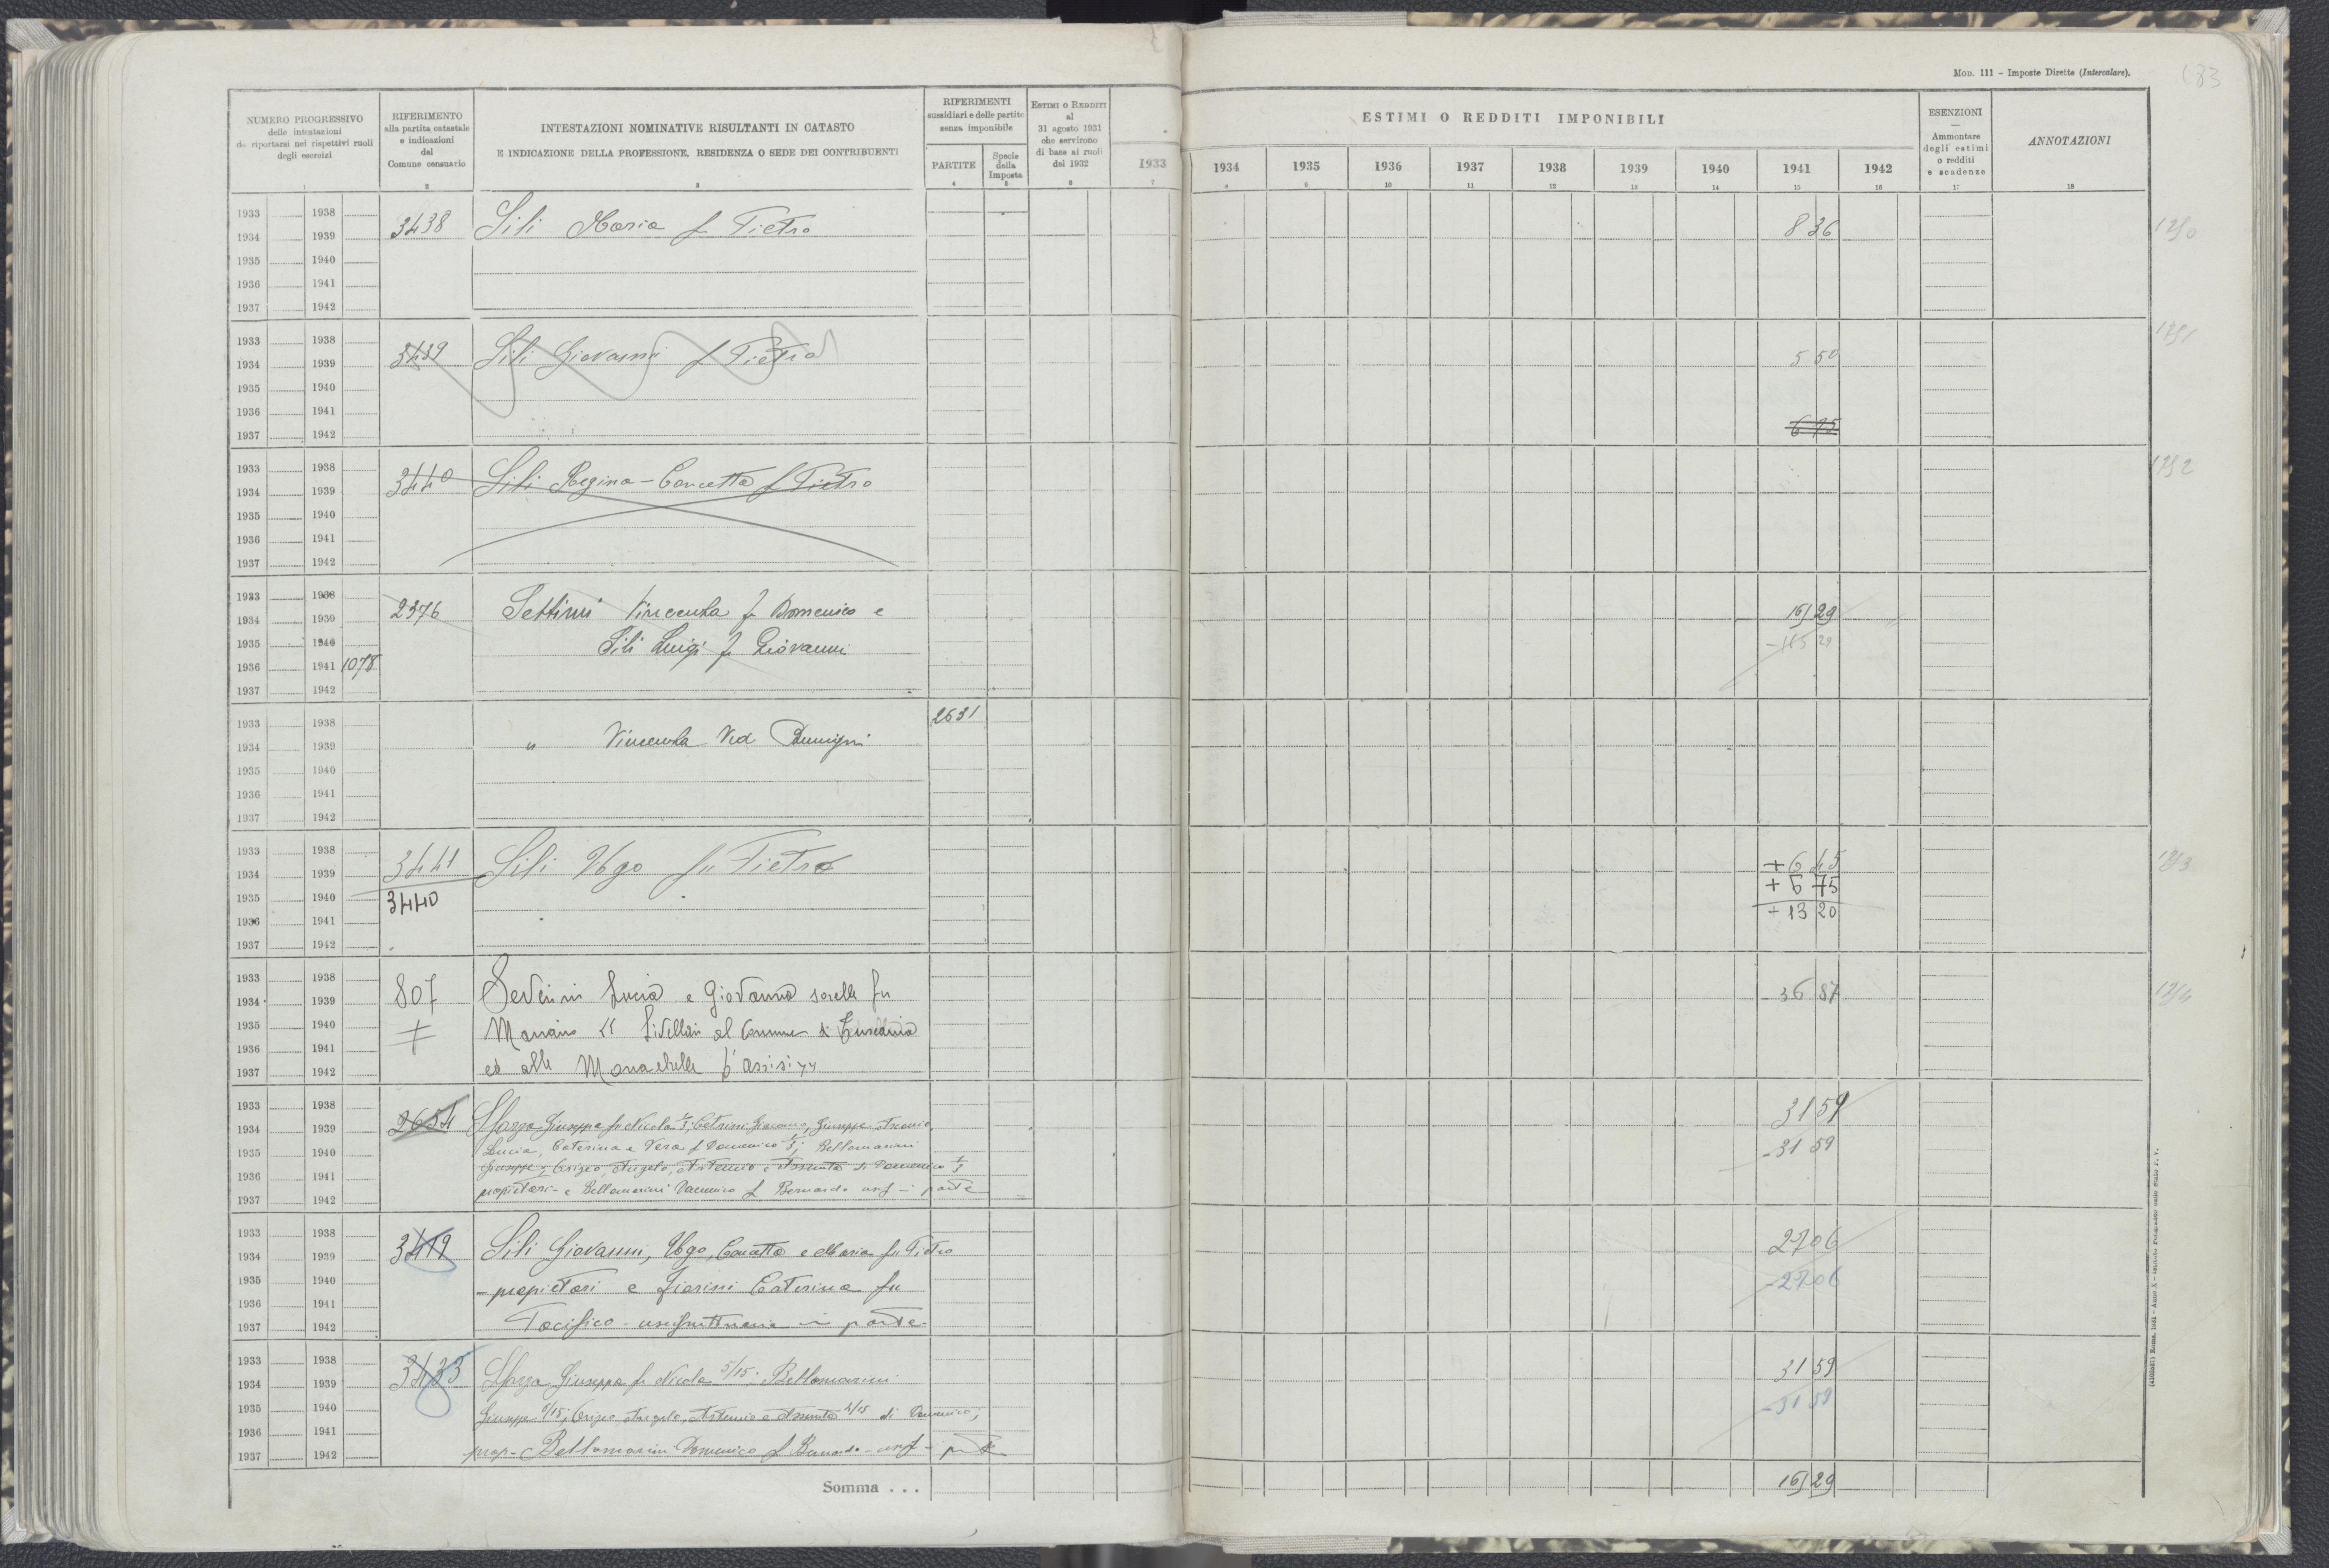 Mod. 111 – Imposte Dirette (Intercalare).
183
NUMERO PROGRESSIVO
delle intestazioni
da riportarsi nei rispettivi ruoli
degli esercizi
RIFERIMENTO
alla partita catastale
e indicazioni
del
Comune censuario
INTESTAZIONI NOMINATIVE RISULTANTI IN CATASTO
E INDICAZIONE DELLA PROFESSIONE, RESIDENZA O SEDE DEI CONTRIBUENTI
RIFERIMENTI
sussidiari e delle partite
senza imponibile
PARTITE
Specie
della
Imposta
Estimi o Redditi
al
31 agosto 1931
che servirono
di base ai ruoli
del 1932
ESTIMI O REDDITI IMPONIBILI
1933 1934 1935 1936 1937 1938 1939 1940 1941 1942
ESENZIONI
—
Ammontare
degli estimi
o redditi
e scadenze
ANNOTAZIONI
1 2 3 4 5 6 7 8 9 10 11 12 13 14 15 16 17 18
1933 1938
1934 1939 3438 Sili Maria f Pietro 836
1935 1940
1936 1941
1937 1942
1933 1938
1934 1939 3439 Sili Giovanni f Pietro 550
1935 1940
1936 1941
1937 1942 675
1933 1938
1934 1939 3440 Sili Regina - Concetta f Pietro
1935 1940
1936 1941
1937 1942
1933 1938
1934 1939 2376 Settimi Vincenza f Domenico e 29
1935 1940 Sili Luigi f Giovanni
1936 1941 1078
1937 1942
1933 1938 2631
1934 1939 " Vincenza Ved
1935 1940
1936 1941
1937 1942
1933 1938
1934 1939 3441 Sili Ugo fu Pietro + 6 45
1935 1940 3440 + 6 75
1936 1941 + 13 20
1937 1942
1933 1938
1934 1939 807 Severini Lucia e Giovanna sorelle fu 36 87
1935 1940 Mariano " Livellari al Comune di Tuscania
1936 1941
1937 1942 ed alle Monachelle d'Assisi "
1933 1938
1934 1939 2654 Sforza Giuseppa fu Nicola 1/3; Giacomo, Giuseppe, 31 59
1935 1940 Lucia, Caterina e Vera f Domenico 1/3; Bellomarini - 31 59
1936 1941 Giuseppe, Angelo, Artemio e Assunta di Domenico 1/3
1937 1942 propietari - e Bellomarini Domenico f Bernardo usuf - in parte
1933 1938
1934 1939 3419 Sili Giovanni, Ugo, Concetta e Maria fu Pietro 2706
1935 1940 - propietari e Fiorini Caterina fu - 2706
1936 1941
1937 1942 Pacifico - usufruttuaria in parte -
1933 1938
1934 1939 3435 Sforza Giuseppa fu Nicola 5/15; Bellomarini 31 59
1935 1940 Giuseppe 6/15; Angelo, Artemio e Assunta 4/15 di Domenico; - 31 59
1936 1941
1937 1942 prop - Bellomarini Domenico f Bernardo - usuf -
Somma . . . 29